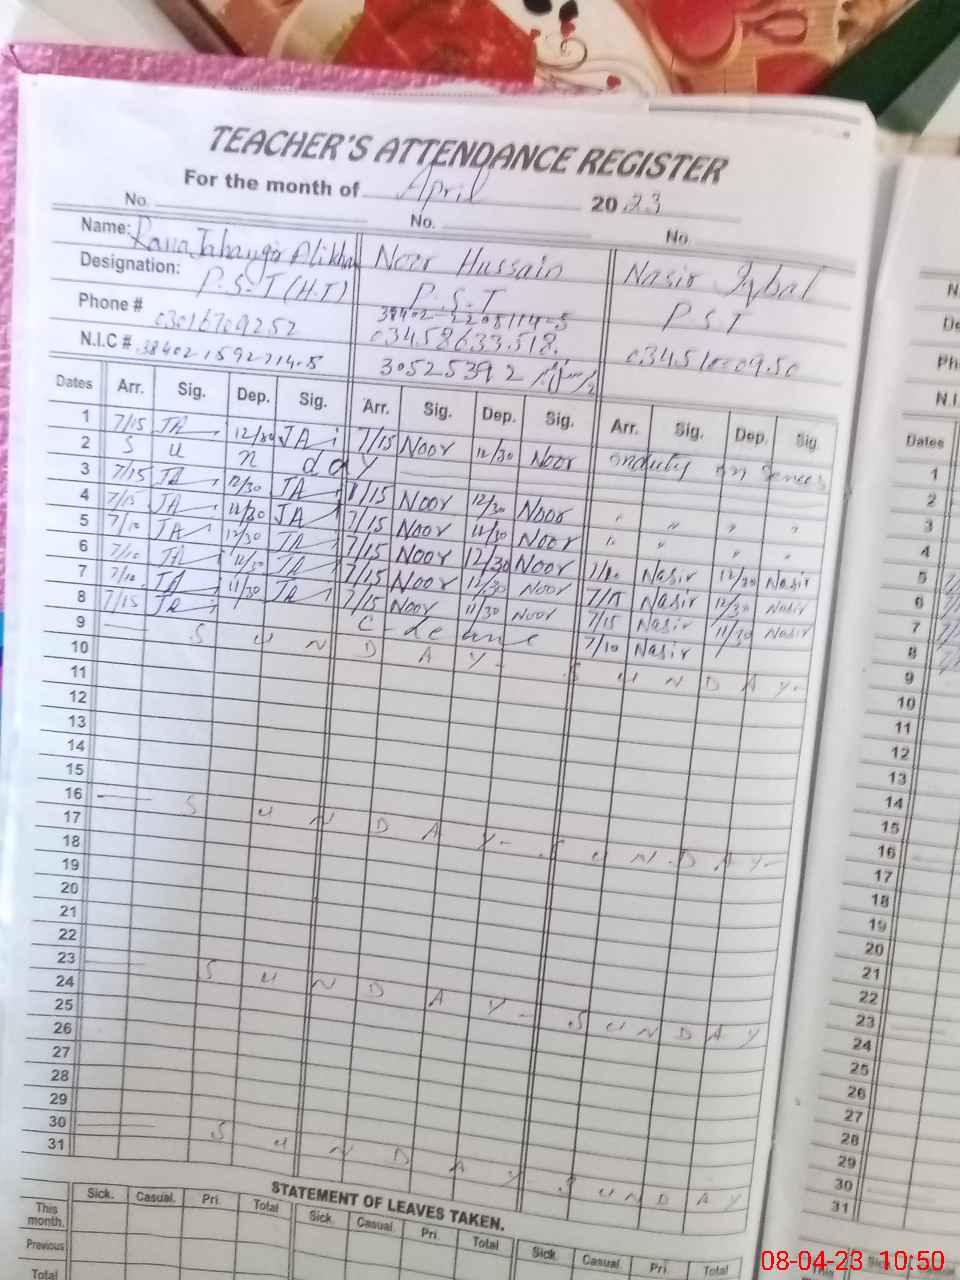 TEACHER'S ATTENDANCE REGISTER
For the month of April 2023
No. No. No.
Name: Rana Jahangir Alikhan Noor Hussain Nasir Iqbal
Designation: P.S.T (H.T) P.S.T P.S.T
Phone # 03016709252 38402-2208114-5 03458633518. 0345
N.I.C # 38402 1592214-5 30525392
Dates Arr. Sig. Dep. Sig. Arr. Sig. Dep. Sig. Arr. Sig. Dep. Sig.
1 7/15 JA 12/30 JA 7/15 Noor 12/30 Noor onduty on
2 S u n d a y
3 7/15 JA 12/30 JA 7/15 Noor 12/30 Noor " " " "
4 7/15 JA 12/30 JA 7/15 Noor 12/30 Noor " " " "
5 7/10 JA 12/30 JA 7/15 Noor 12/30 Noor 7/10 Nasir 12/30 Nasir
6 7/10 JA 12/30 JA 7/15 Noor 12/30 Noor 7/15 Nasir 12/30 Nasir
7 7/10 JA 11/30 JA 7/15 Noor 11/30 Noor 7/15 Nasir 11/30 Nasir
8 7/15 JA C-leave 7/10 Nasir
9 S U N D A Y - S U N D A Y -
10
11
12
13
14
15
16 S U N D A Y - S U N D A Y -
17
18
19
20
21
22
23 S U N D A Y - S U N D A Y
24
25
26
27
28
29
30 S U N D A Y - S U N D A Y
31
STATEMENT OF LEAVES TAKEN.
Sick. Casual. Pri. Total Sick. Casual. Pri. Total Sick. Casual. Pri. Total
This month.
Previous
Total
N.
De
Ph
N.I.
Dates
1
2
3
4
5
6
7
8
9
10
11
12
13
14
15
16
17
18
19
20
21
22
23
24
25
26
27
28
29
30
31
This Sick
08-04-23 10:50